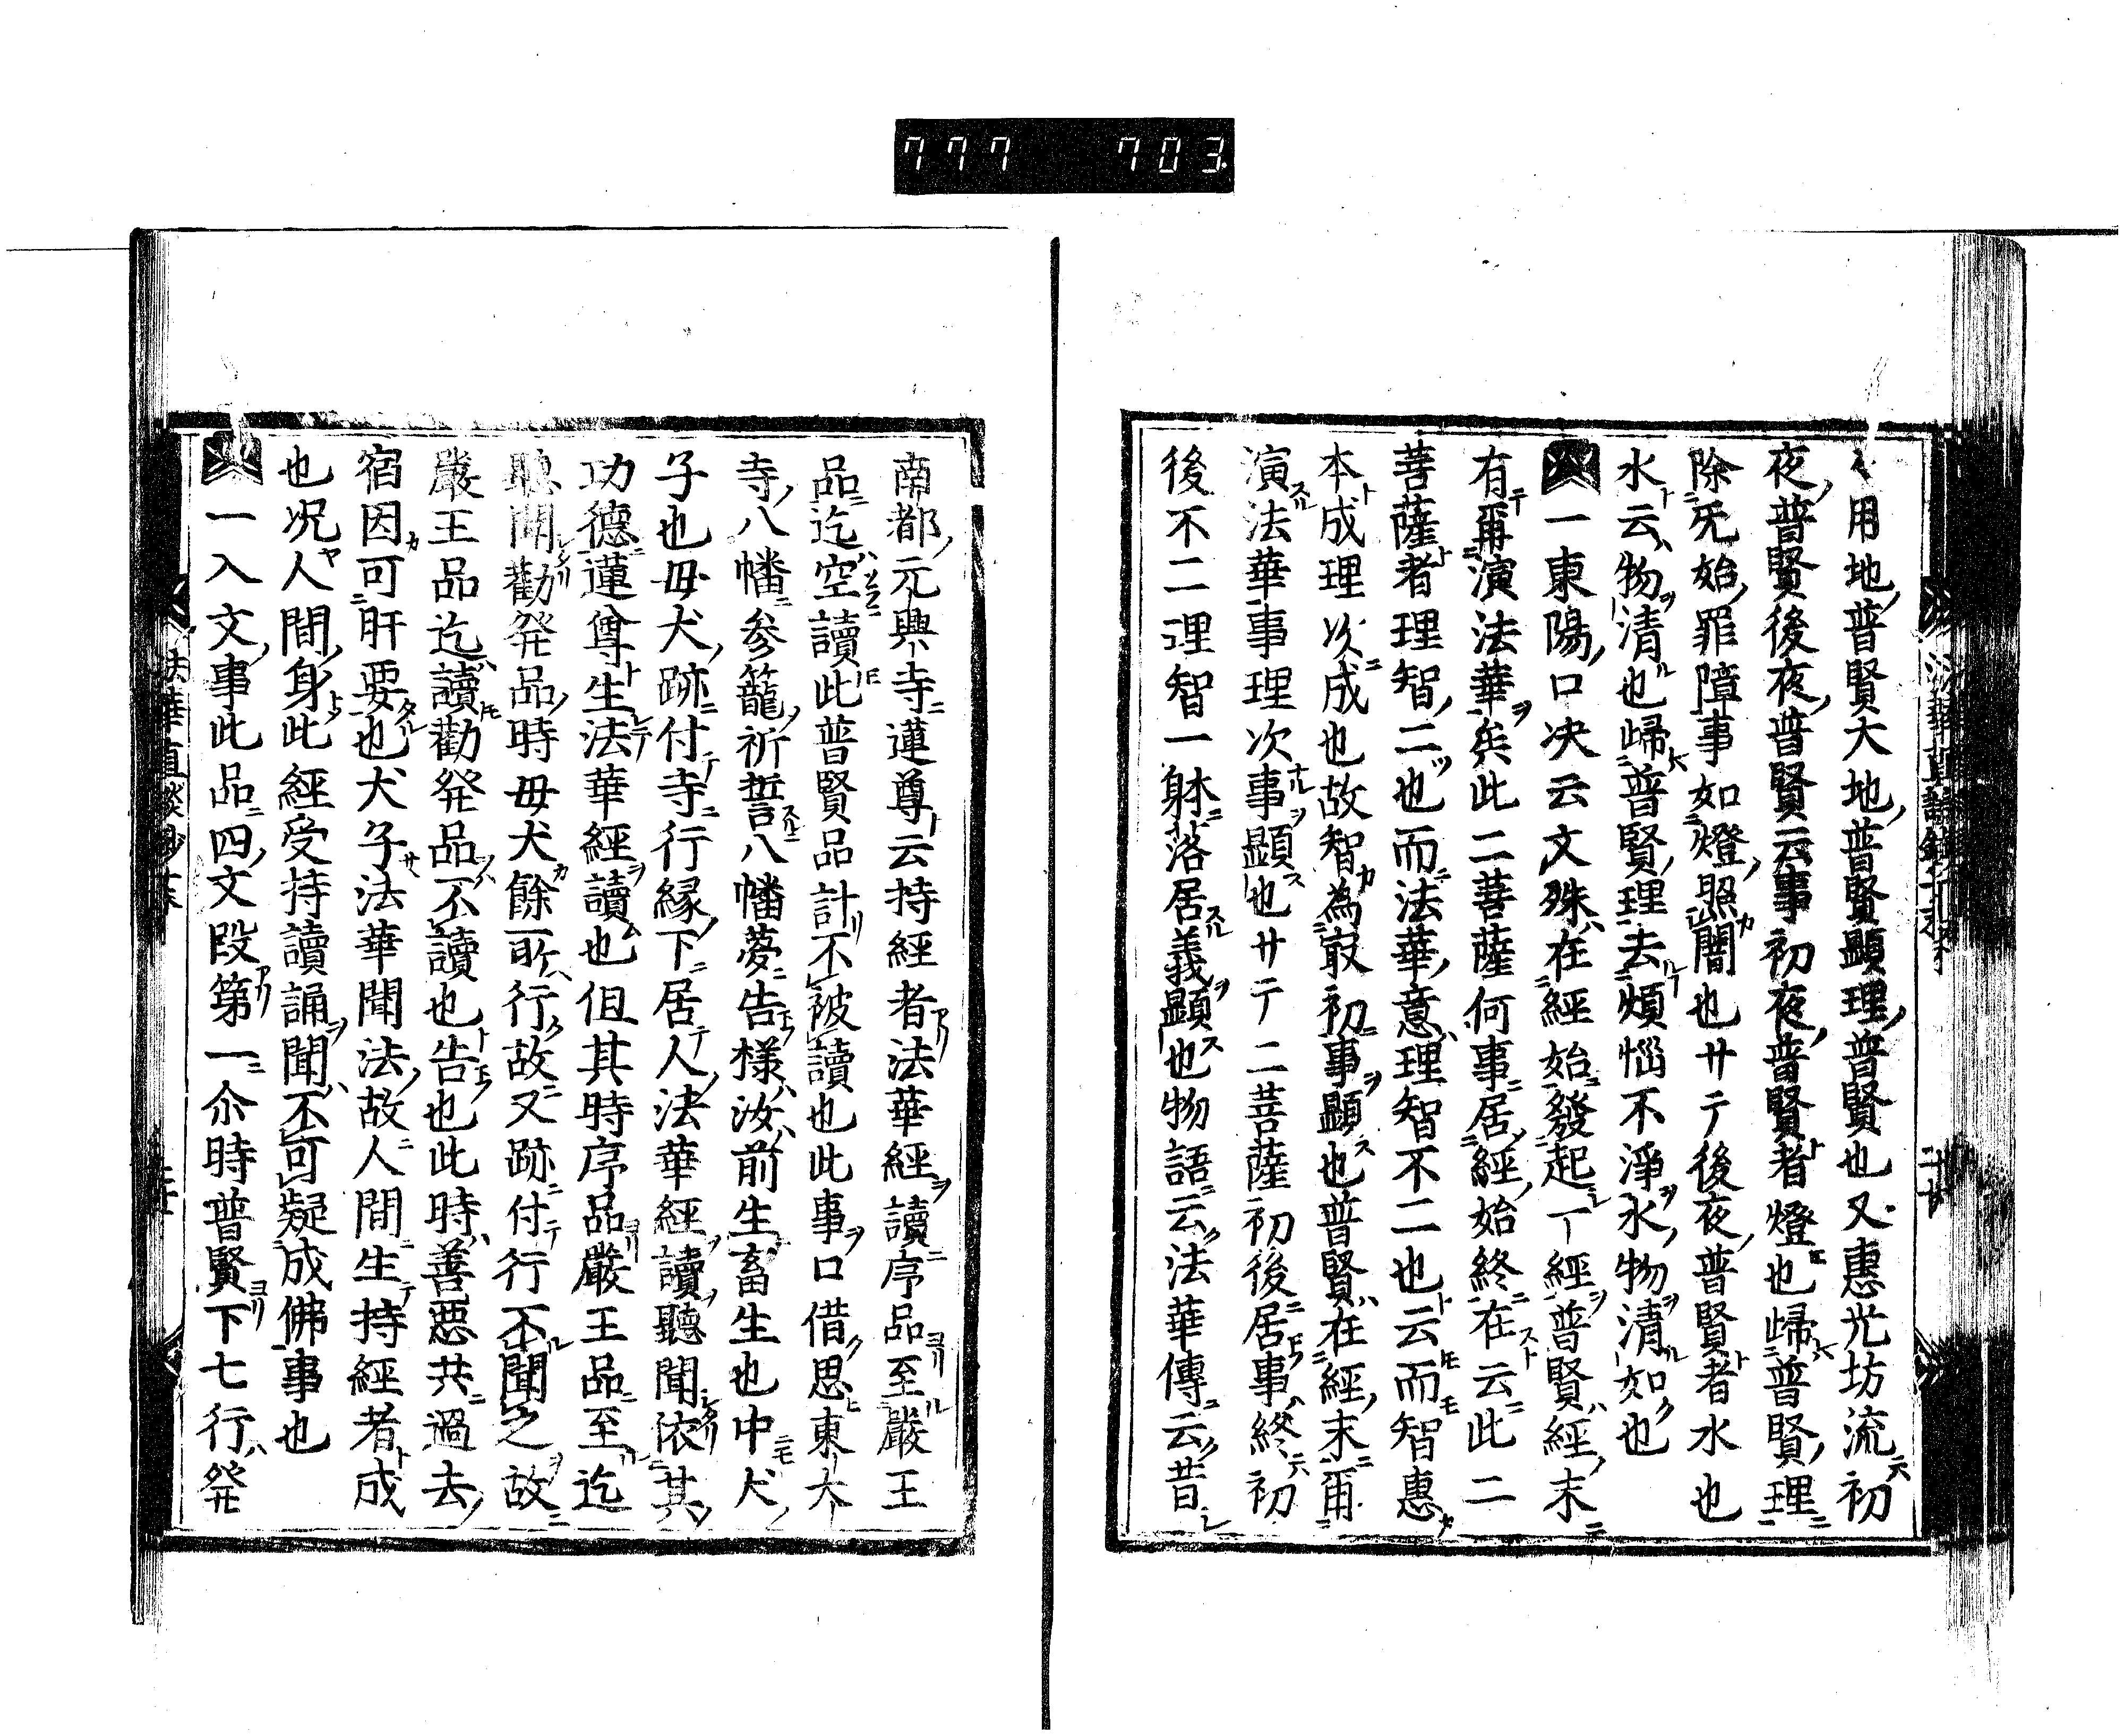 777 703
用地普賢大地普賢顕理普賢也又惠光坊流初
夜普賢後夜普賢云事初夜普賢者燈也歸普賢理
除旡始罪障事如燈照闇也サテ後夜普賢者水也
水云物清也歸普賢理去煩惱不淨水物清如也
一東陽口决云文殊在經始發起丁經普賢經末
有再演法華矣此二菩薩何事居經始終在云此二
菩薩者理智二也而法華意理智不二也云而智惠
本成理次成也故智為㝡初事顕也普賢在經末再
演法華事理次事顕也サテ二菩薩初後居事終初
後不二理智一躰落居義顕也物語云法華傳云昔
南都元興寺蓮尊云持經者法華經讀序品至嚴王
品迄空讀此普賢品計不被讀也此事口借思東大
寺八幡参籠祈誓八幡夢告様汝前生畜生也中犬
子也母犬跡付寺行縁下居人法華經讀聽聞依其
功德蓮尊生法華經讀也但其時序品嚴王品至迄
聽聞勸発品時母犬餘所行故又跡付行不聞之故
嚴王品迄讀勸発品不讀也告也此時善惡共過去
宿因可肝要也犬子法華聞法故人間生持經者成
也况人間身此經受持讀誦聞不可疑成佛事也
一入文事此品四文段第一尒時普賢下七行発
法華直談鈔十末